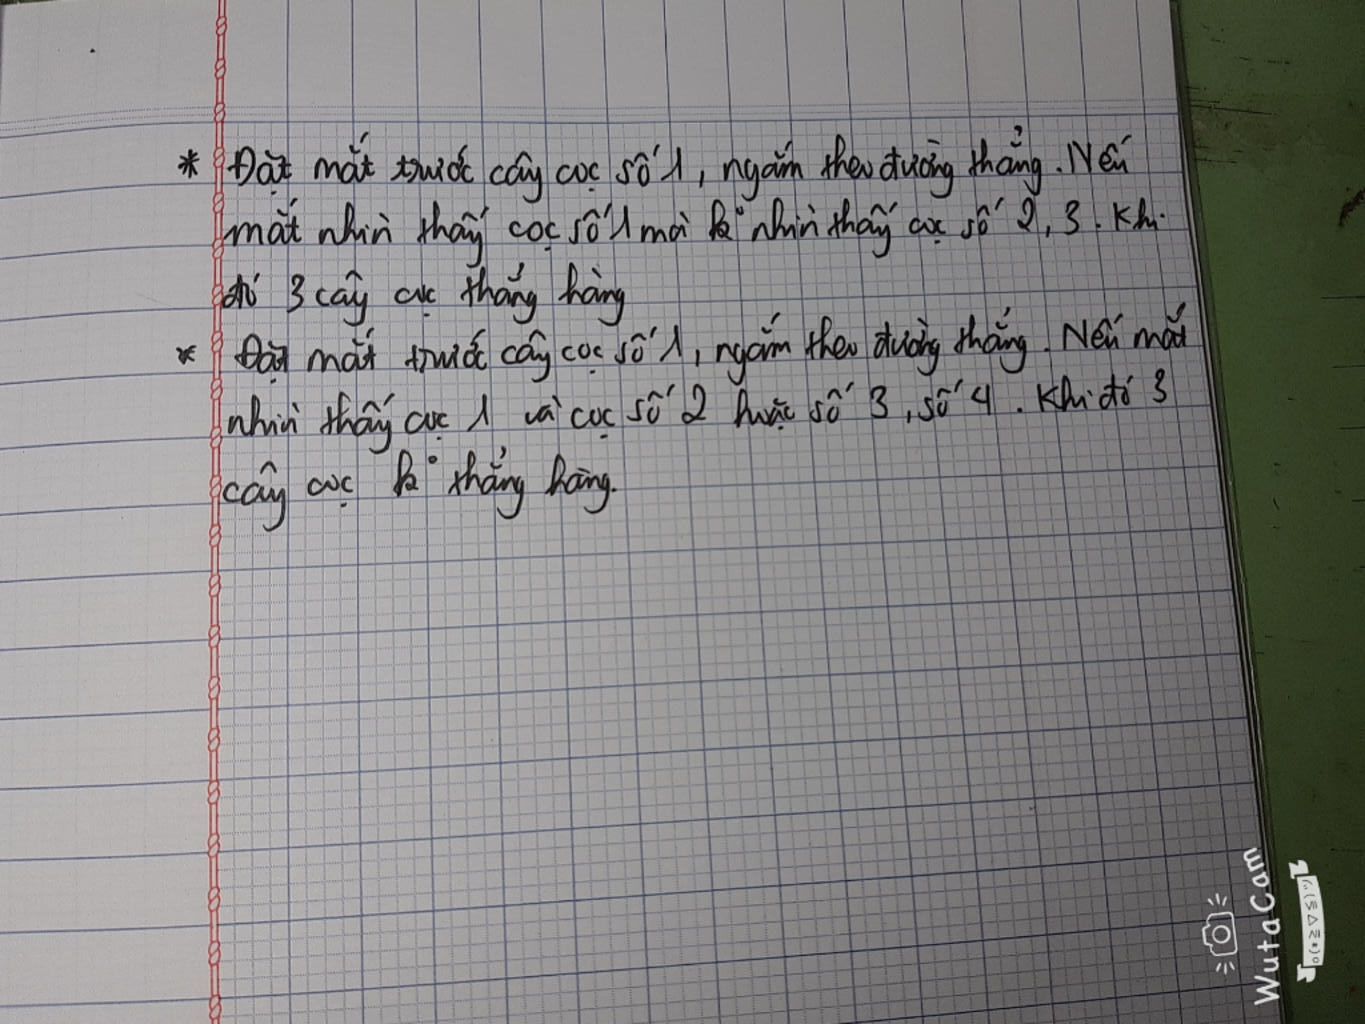 * Đặt mắt trước cây cọc số 1, ngắm theo đường thẳng. Nếu
mắt nhìn thấy cọc số 1 mà k° nhìn thấy cọc số 2, 3. Khi
đó 3 cây cọc thẳng hàng
* Đặt mắt trước cây cọc số 1, ngắm theo đường thẳng. Nếu mắt
nhìn thấy cọc 1 và cọc số 2 hoặc số 3, số 4. Khi đó 3
cây cọc k° thẳng hàng.
WutaCam